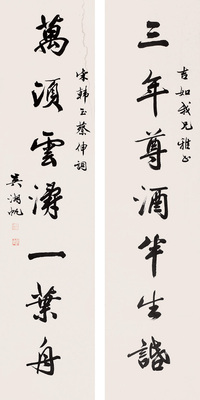 吉如我兄雅正
三年尊酒半生
宋韓玉蔡伸詞
萬頃雲濤一葉舟
吳湖帆